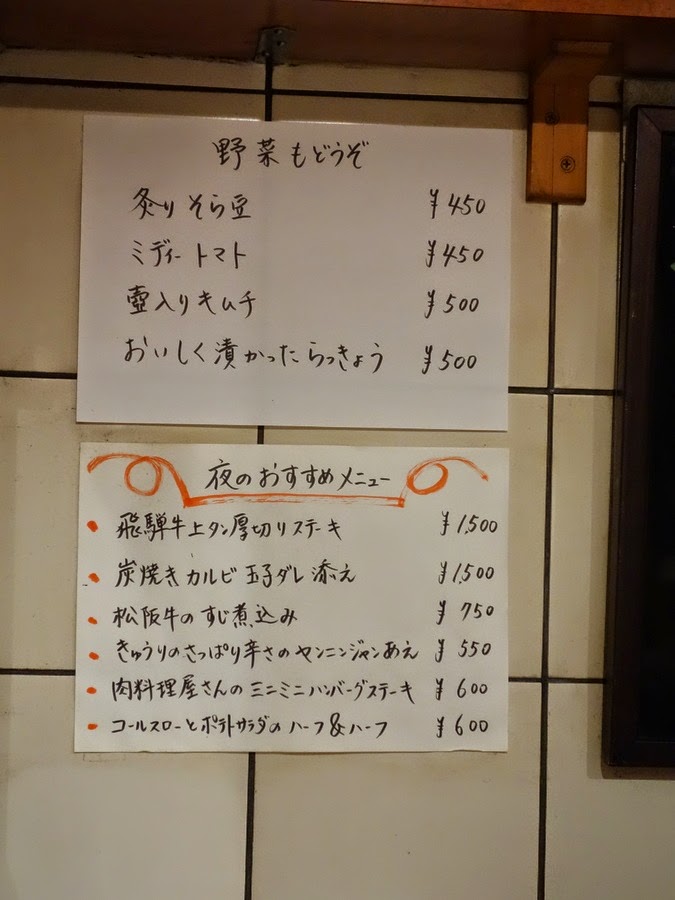 野菜もどうぞ
炙りそら豆 ¥450
ミディートマト ¥450
壺入りキムチ ¥500
おいしく漬かったらっきょう ¥500
夜のおすすめメニュー
飛騨牛上タン厚切りステーキ ¥1,500
炭焼きカルビ玉子ダレ添え ¥1,500
松阪牛のすじ煮込み ¥750
きゅうりのさっぱり辛さのヤンニンジャンあえ ¥550
肉料理屋さんのミニミニハンバーグステーキ ¥600
コールスローとポテトサラダのハーフ&ハーフ ¥600